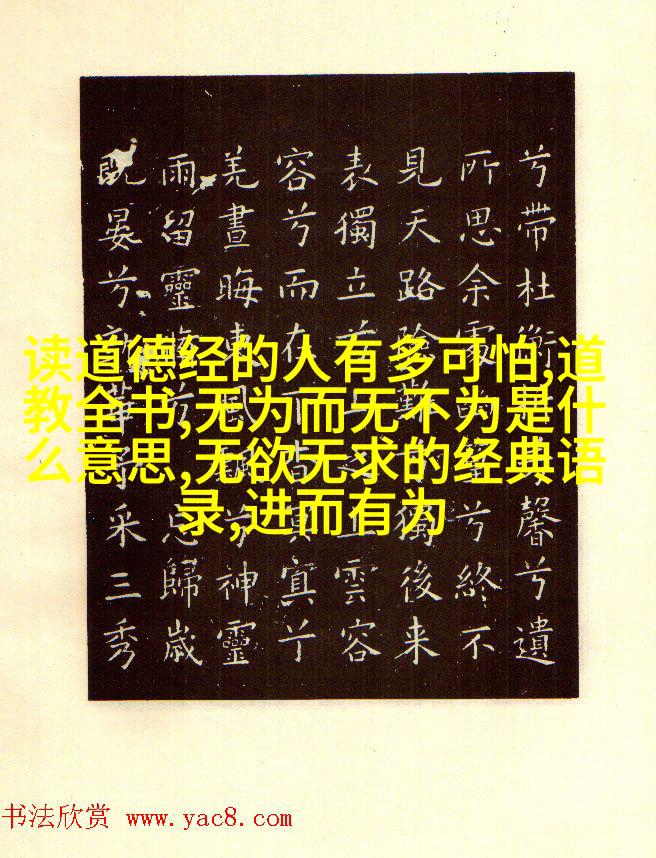 兮帶杜衡馨兮遺
所思余處兮終不
見天路險難獨後来
表獨立雲容
容兮而在下冥兮
羌晝晦東風飄兮神靈
雨留靈兮忘歸歲
既晏兮華予采三秀
读道德经的人有多可怕,道
教全书,无为而无不为是什
么意思,无欲无求的经典语
录,进而有为
书法欣赏 www.yac8.com